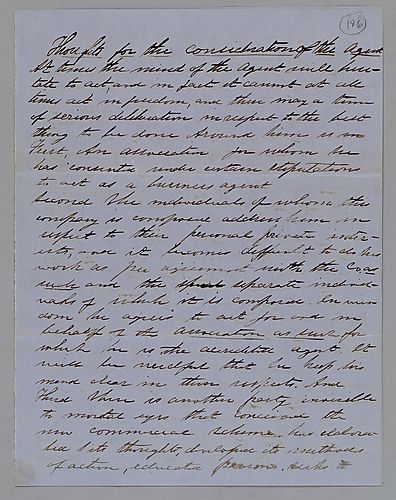 186
Thoughts for the consideration of the Agent
At times the mind of the Agent will hesi-
tate to act, and in fact it cannot at all
times act in freedom, and there may a time
of serious deliberation in respect to the best
thing to be done Around him is
First, An association for whom he
has consented under certain stipulations
to act as a business agent
Second The individuals of whom this
company is composed address him in
respect to their personal private inter-
ests, and it becomes difficult to do his
work as per agreement with the
and the separate individ-
uals of which it is composed. In wis-
dom he agrees to act for and in
behalf of the association as such for
which he is the accredited agent. It
will be needful that he keep his
mind clear in these respects. And
Third There is another party invisible
to mortal eyes that conceived the
new commercial scheme, has elabora-
ted its thoughts, developed its methods
of action, educated persons, seeks to